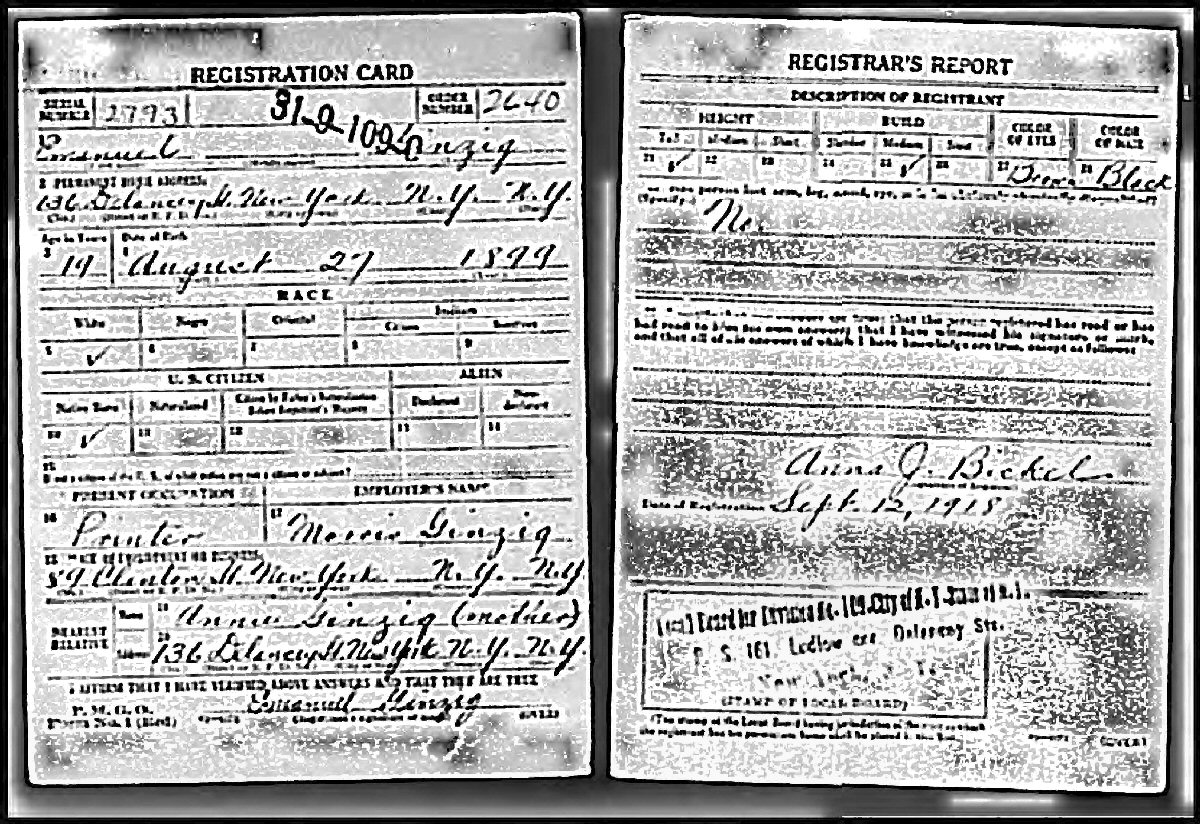 REGISTRATION CARD
SERIAL NUMBER 2793
31-9-109
ORDER NUMBER 2640
Emanuel Ginzig
2 PERMANENT HOME ADDRESS
136 Delancey St. New York N.Y. N.Y.
Age in Years Date of Birth
3 19 4 August 27 1899
RACE
White Negro Oriental Indian
Citizen
5 ✓ 6 7 8 9
U. S. CITIZEN ALIEN
Native Born Naturalized Citizen by Father's Naturalization Before Registrant's Majority Declarant Non-declarant
10 ✓ 11 12 13 14
15
If not a citizen of the U. S., of what nation are you a citizen or subject?
PRESENT OCCUPATION EMPLOYER'S NAME
16 Printer 17 Morris Ginzig
18 PLACE OF EMPLOYMENT OR BUSINESS
59 Clinton St. New York N.Y. N.Y.
NEAREST RELATIVE Name 19 Annie Ginzig (mother)
Address 20 136 Delancey St. New York N.Y. N.Y.
I AFFIRM THAT I HAVE VERIFIED ABOVE ANSWERS AND THAT THEY ARE TRUE
P. M. G. O.
Form No. 1 (Red)
Emanuel Ginzig
(Registrant's signature or mark)
(OVER)
REGISTRAR'S REPORT
DESCRIPTION OF REGISTRANT
HEIGHT BUILD COLOR OF EYES COLOR OF HAIR
Tall Medium Short Slender Medium Stout
21 ✓ 22 23 24 25 ✓ 26 27 Brown 28 Black
(Specify.) No.
had read to him his own answers; that I have witnessed his signature or mark
and that all of his answers of which I have knowledge are true, except as follows:
Anna J. Bickel
Date of Registration Sept. 12, 1918
Local Board for Division No. 109, City of N. Y. - State of N. Y.
P. S. 161, Ludlow and Delancey Sts.
New York, N. Y.
(STAMP OF LOCAL BOARD)
(The stamp of the Local Board having jurisdiction of the area in which
the registrant has his permanent home shall be placed in this box.)
(OVER)